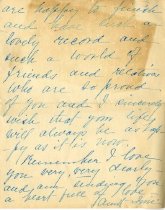 are happy to finish
and have such a
lovely record and
such a world of
friends and relatives
who are so proud
of you and I sincerely
wish that your life
will always be as hap-
py as it is now.
Remember I love
you very, very dearly
and am sending you
a heart full of love
Aunt